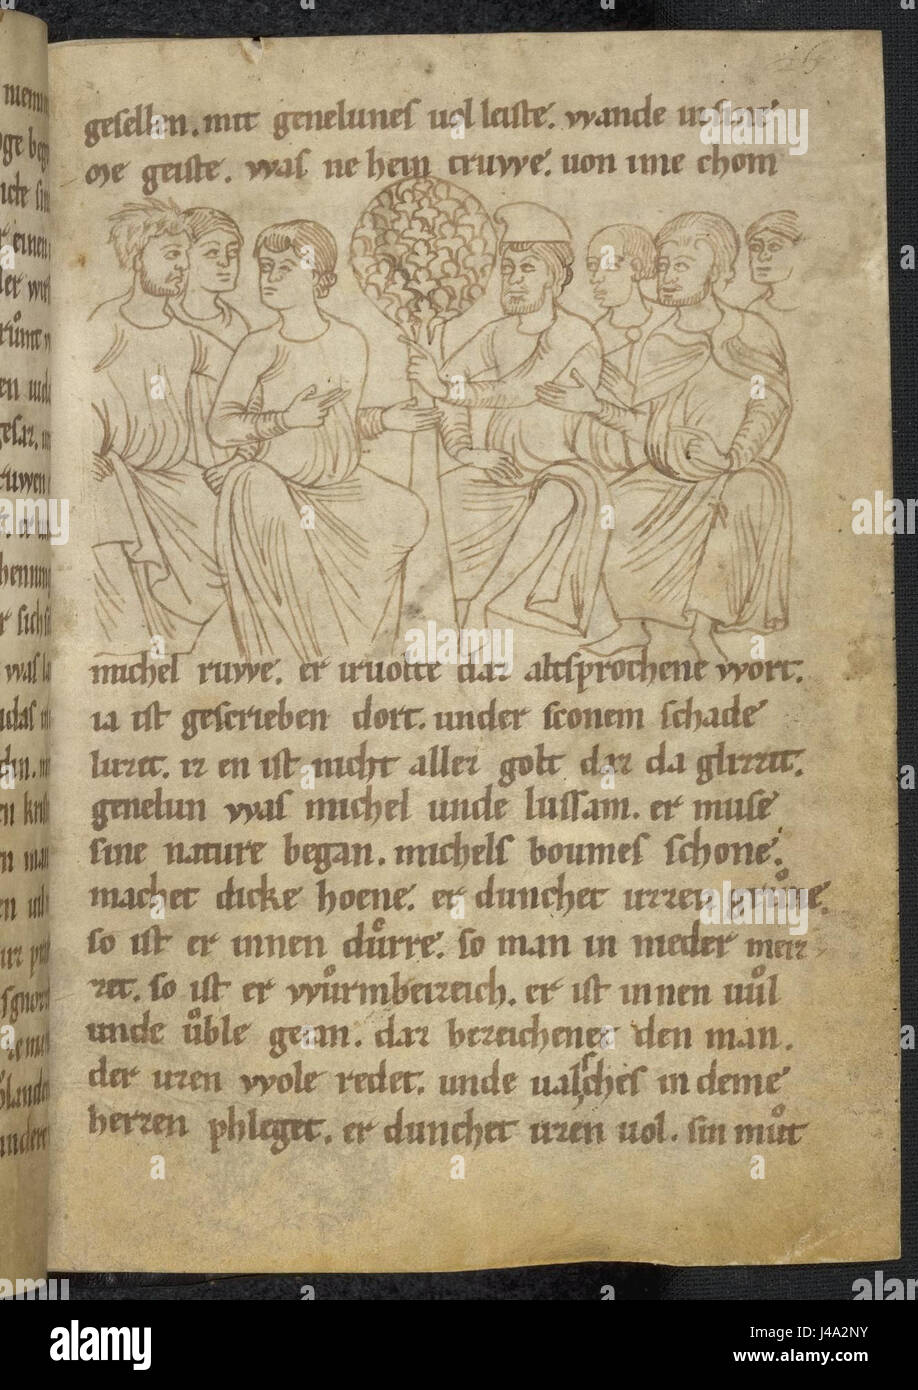 gesellen. mit genelunes uol leiste. wande
geiste. was ne hein truwe. uon ime chom
michel ruwe. er iruolte daz altsprochene wort.
ia ist gescrieben dort. under sconem schade
luzet. iz en ist nicht allez golt daz da glizzit.
genelun was michel unde lussam. er muse
sine nature began. michels boumes schone.
machet dicke hoene. er dunchet uzzen gruͦne.
so ist er innen duͦrre. so man in nieder meiz
zet. so ist er wuͦrmbeizeich. er ist innen uuͦl
unde uͦble getan. daz bezeichenet den man.
der uzen wole redet. unde ualsches in deme
herzen phleget. er dunchet uzen uol. sin muͦt
a alamy stock photo
J4A2NY
www.alamy.com